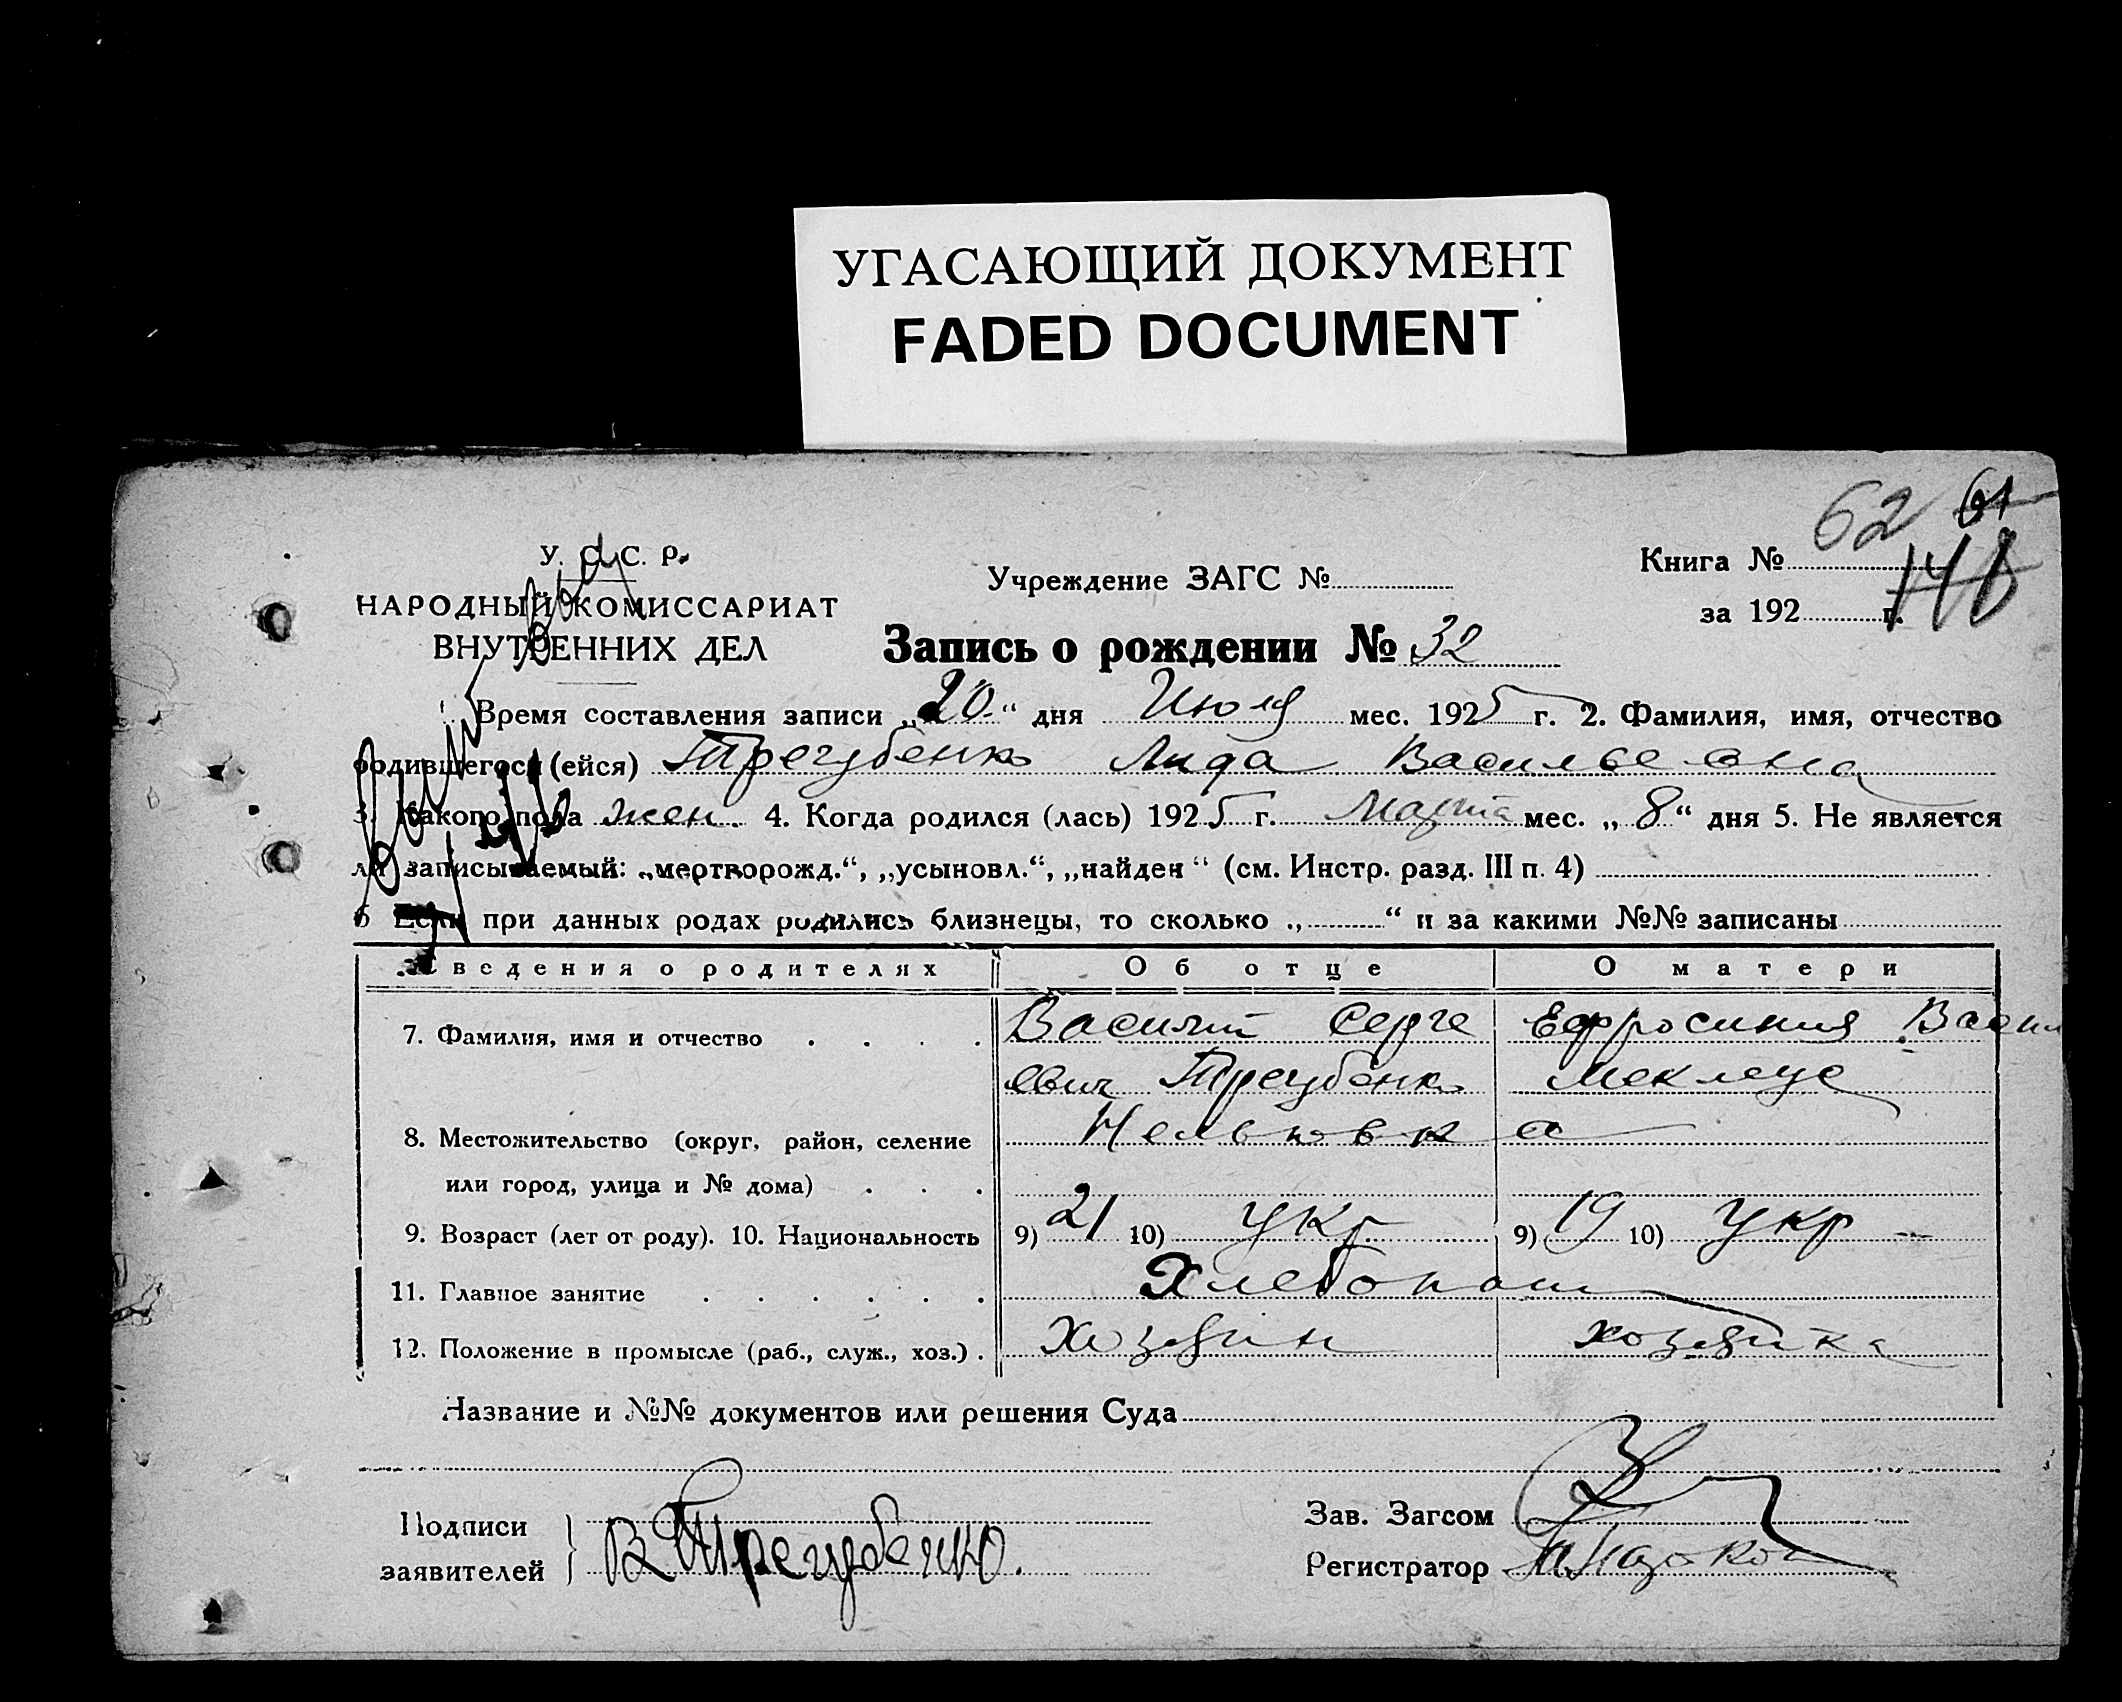 УГАСАЮЩИЙ ДОКУМЕНТ
FADED DOCUMENT
62 61
148
У. С. С. Р.
НАРОДНЫЙ КОМИССАРИАТ
ВНУТРЕННИХ ДЕЛ
Учреждение ЗАГС №
Книга №
за 192 г.
Запись о рождении № 32
1. Время составления записи „20“ дня Июля мес. 1925 г. 2. Фамилия, имя, отчество
родившегося (ейся) Трегубенко Лида Васильевна
3. Какого пола жен. 4. Когда родился (лась) 1925 г. Марта мес. „8“ дня 5. Не является
ли записываемый: „мертворожд.“, „усыновл.“, „найден“ (см. Инстр. разд. III п. 4)
6 Если при данных родах родились близнецы, то сколько „ “ и за какими №№ записаны
Сведения о родителях Об отце О матери
7. Фамилия, имя и отчество Василий Серге Ефросиния Васил
евич Трегубенко
8. Местожительство (округ, район, селение Нельговка
или город, улица и № дома)
9. Возраст (лет от роду). 10. Национальность 9) 21 10) укр 9) 19 10) укр
11. Главное занятие Хлебопаш
12. Положение в промысле (раб., служ., хоз.) Хозяин хозяйка
Название и №№ документов или решения Суда
Подписи
заявителей В Трегубенко.
Зав. Загсом
Регистратор